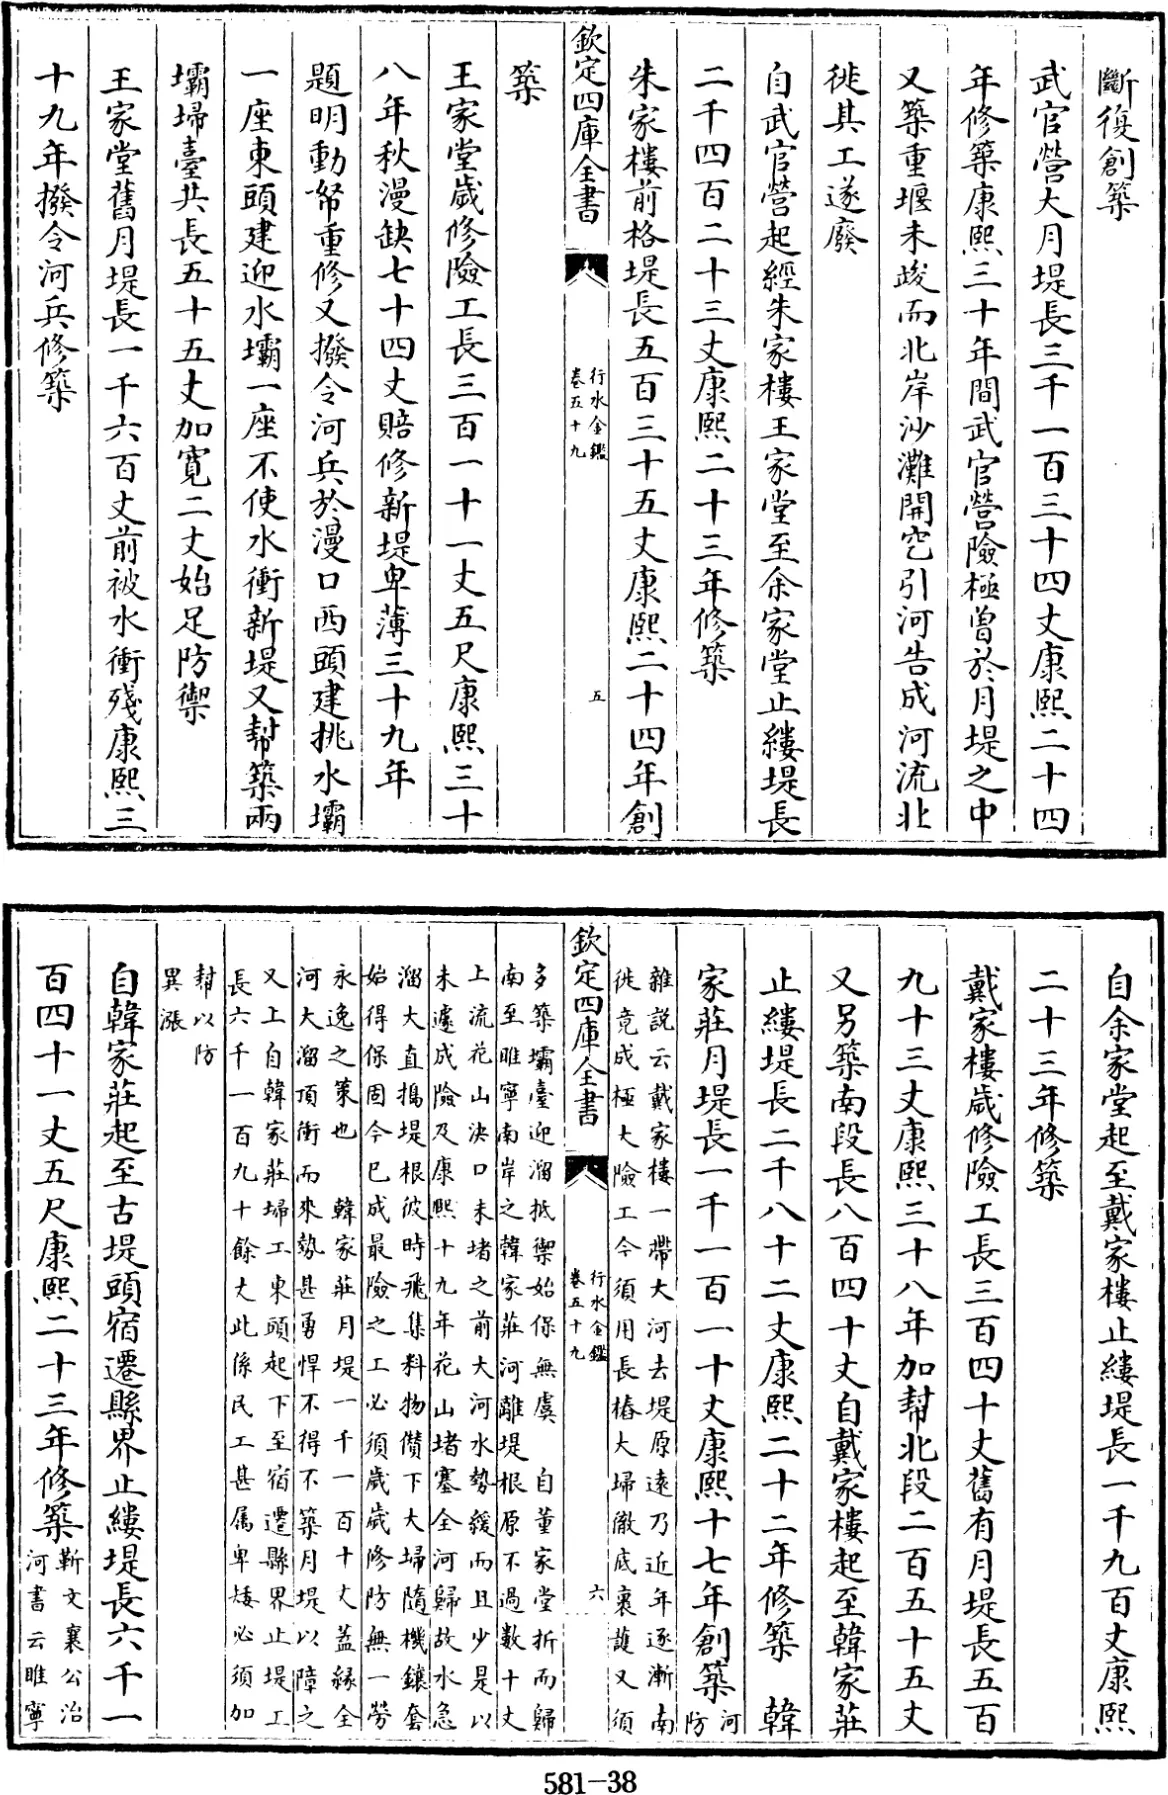 斷復創築
武官營大月堤長三千一百三十四丈康熙二十四
年修築康熙三十年間武官營險極曽於月堤之中
又築重堰未竣而北岸沙灘開空引河告成河流北
徙其工遂廢
自武官營起經朱家樓王家堂至余家堂止縷堤長
二千四百二十三丈康熙二十三年修築
朱家樓前格堤長五百三十五丈康熙二十四年創
欽定四庫全書
行水金鑑
卷五十九
五
築
王家堂歲修險工長三百一十一丈五尺康熙三十
八年秋漫缺七十四丈賠修新堤卑薄三十九年
題明動帑重修又撥令河兵於漫口西頭建挑水壩
一座東頭建迎水壩一座不使水衝新堤又幇築兩
壩埽臺共長五十五丈加寛二丈始足防禦
王家堂舊月堤長一千六百丈前被水衝殘康熙三
十九年撥令河兵修築
自余家堂起至戴家樓止縷堤長一千九百丈康熙
二十三年修築
戴家樓歲修險工長三百四十丈舊有月堤長五百
九十三丈康熙三十八年加幇北段二百五十五丈
又另築南段長八百四十丈自戴家樓起至韓家莊
止縷堤長二千八十二丈康熙二十二年修築 韓
家莊月堤長一千一百一十丈康熙十七年創築河
防
雜說云戴家樓一帶大河去堤原遠乃近年逐漸南
徙竟成極大險工今須用長樁大埽徹底裹護又須
欽定四庫全書
行水金鑑
卷五十九
六
多築壩臺迎溜抵禦始保無虞 自董家堂折而歸
南至睢寧南岸之韓家莊河離堤根原不過數十丈
上流花山決口未堵之前大河水勢緩而且少是以
未遽成險及康熙十九年花山堵塞全河歸故水急
溜大直搗堤根彼時飛集料物儹下大埽隨機鑲套
始得保固今已成最險之工必須歲歲修防無一勞
永逸之策也 韓家莊月堤一千一百十丈蓋縁全
河大溜頂衝而來勢甚勇悍不得不築月堤以障之
又上自韓家莊埽工東頭起下至宿遷縣界止堤工
長六千一百九十餘丈此係民工甚属卑矮必須加
幇以防
異漲
自韓家莊起至古堤頭宿遷縣界止縷堤長六千一
百四十一丈五尺康熙二十三年修築靳文襄公治
河書云睢寧
581-38